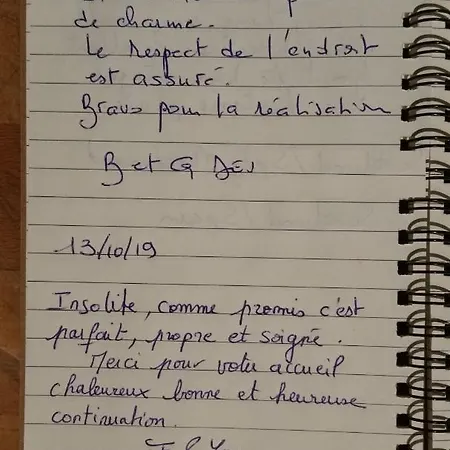 de charme.
Le respect de l'endroit
est assuré.
Bravo pour la réalisation
B et G
13/10/19
Insolite, comme promis c'est
parfait, propre et soigné.
Merci pour votre accueil
chaleureux bonne et heureuse
continuation.